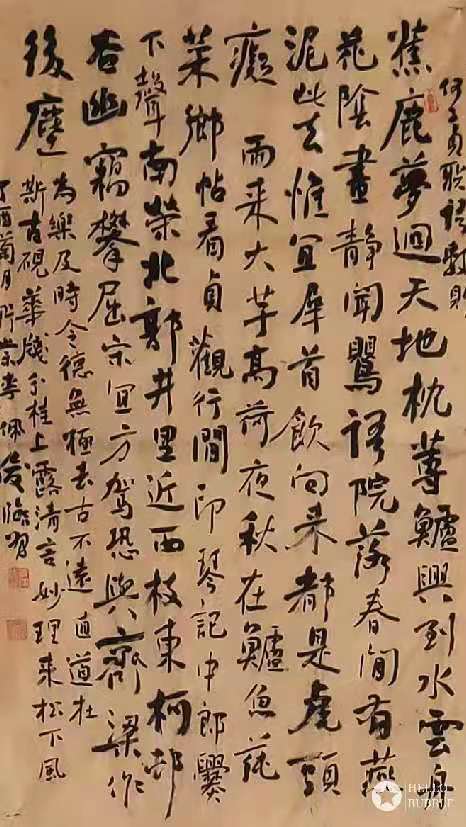 何子貞聯語數則
蕉鹿夢迴天地枕蓴鱸興到水雲舟
花陰晝靜聞鶯語院落春閒有燕
泥此去惟宜犀首飲向來都是虎頭
癡雨來大芋高荷夜秋在鱸魚蒓
菜鄉帖看貞觀行間印琴記中郎爨
下聲南榮北郭井里近西枝東柯邨
杳幽竊攀屈宋宜方駕恐與齊梁作
後塵
為樂及時令德無極去古不遠直道在
斯古硯華箋分桂上露清言妙理來松下風
丁酉菊月李佩俊臨習
HELLO